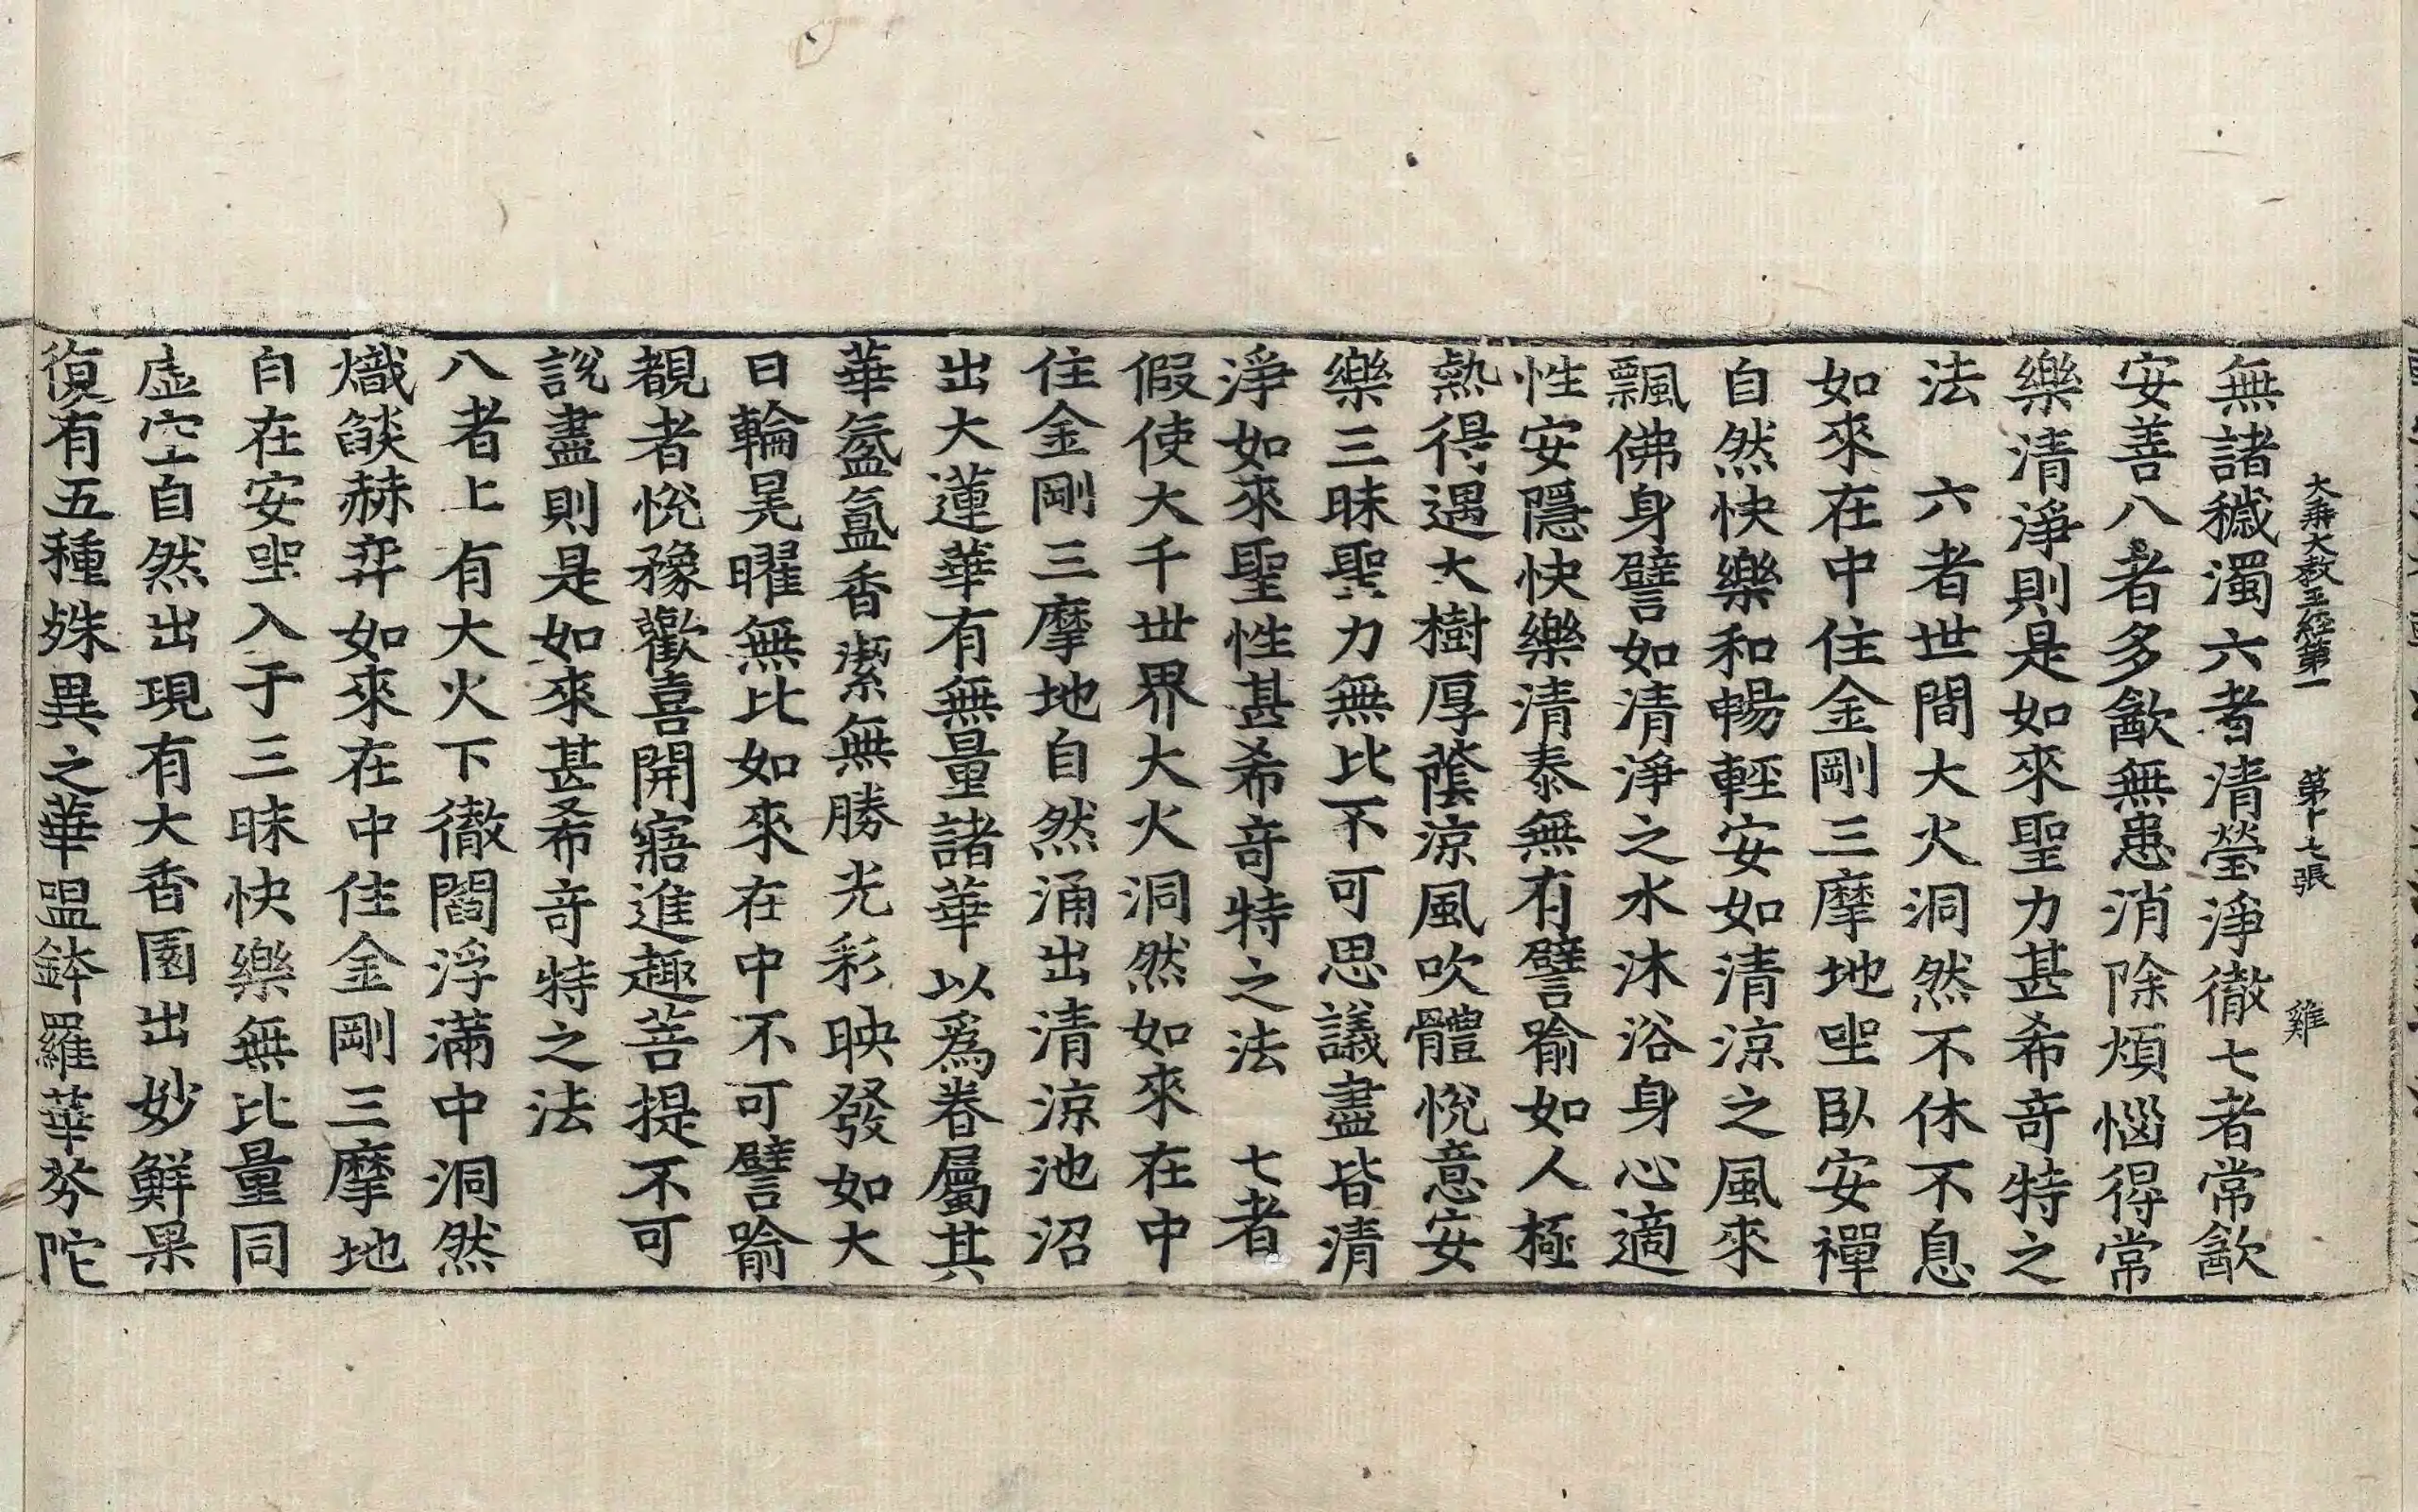 大乘大教王經第一　第十七張　雞
無諸穢濁六者清瑩淨徹七者常歃
安善八者多歃無患消除煩惱得常
樂清淨則是如來聖力甚希奇特之
法　六者世間大火洞然不休不息
如來在中住金剛三摩地坐臥安禪
自然快樂和暢輕安如清涼之風來
飄佛身譬如清淨之水沐浴身心適
性安隱快樂清泰無有譬喻如人極
熱得遇大樹厚蔭涼風吹體悅意安
樂三昧聖力無比不可思議盡皆清
淨如來聖性甚希奇特之法　七者
假使大千世界大火洞然如來在中
住金剛三摩地自然涌出清涼池沼
出大蓮華有無量諸華以為眷屬其
華氛氳香潔無勝光彩映發如大
日輪晃曜無比如來在中不可譬喻
覩者悅豫歡喜開寤進趣菩提不可
說盡則是如來甚希奇特之法
八者上有大火下徹閻浮滿中洞然
熾燄赫弈如來在中住金剛三摩地
自在安坐入于三昧快樂無比量同
虛空自然出現有大香園出妙鮮果
復有五種殊異之華嗢鉢羅華芬陀